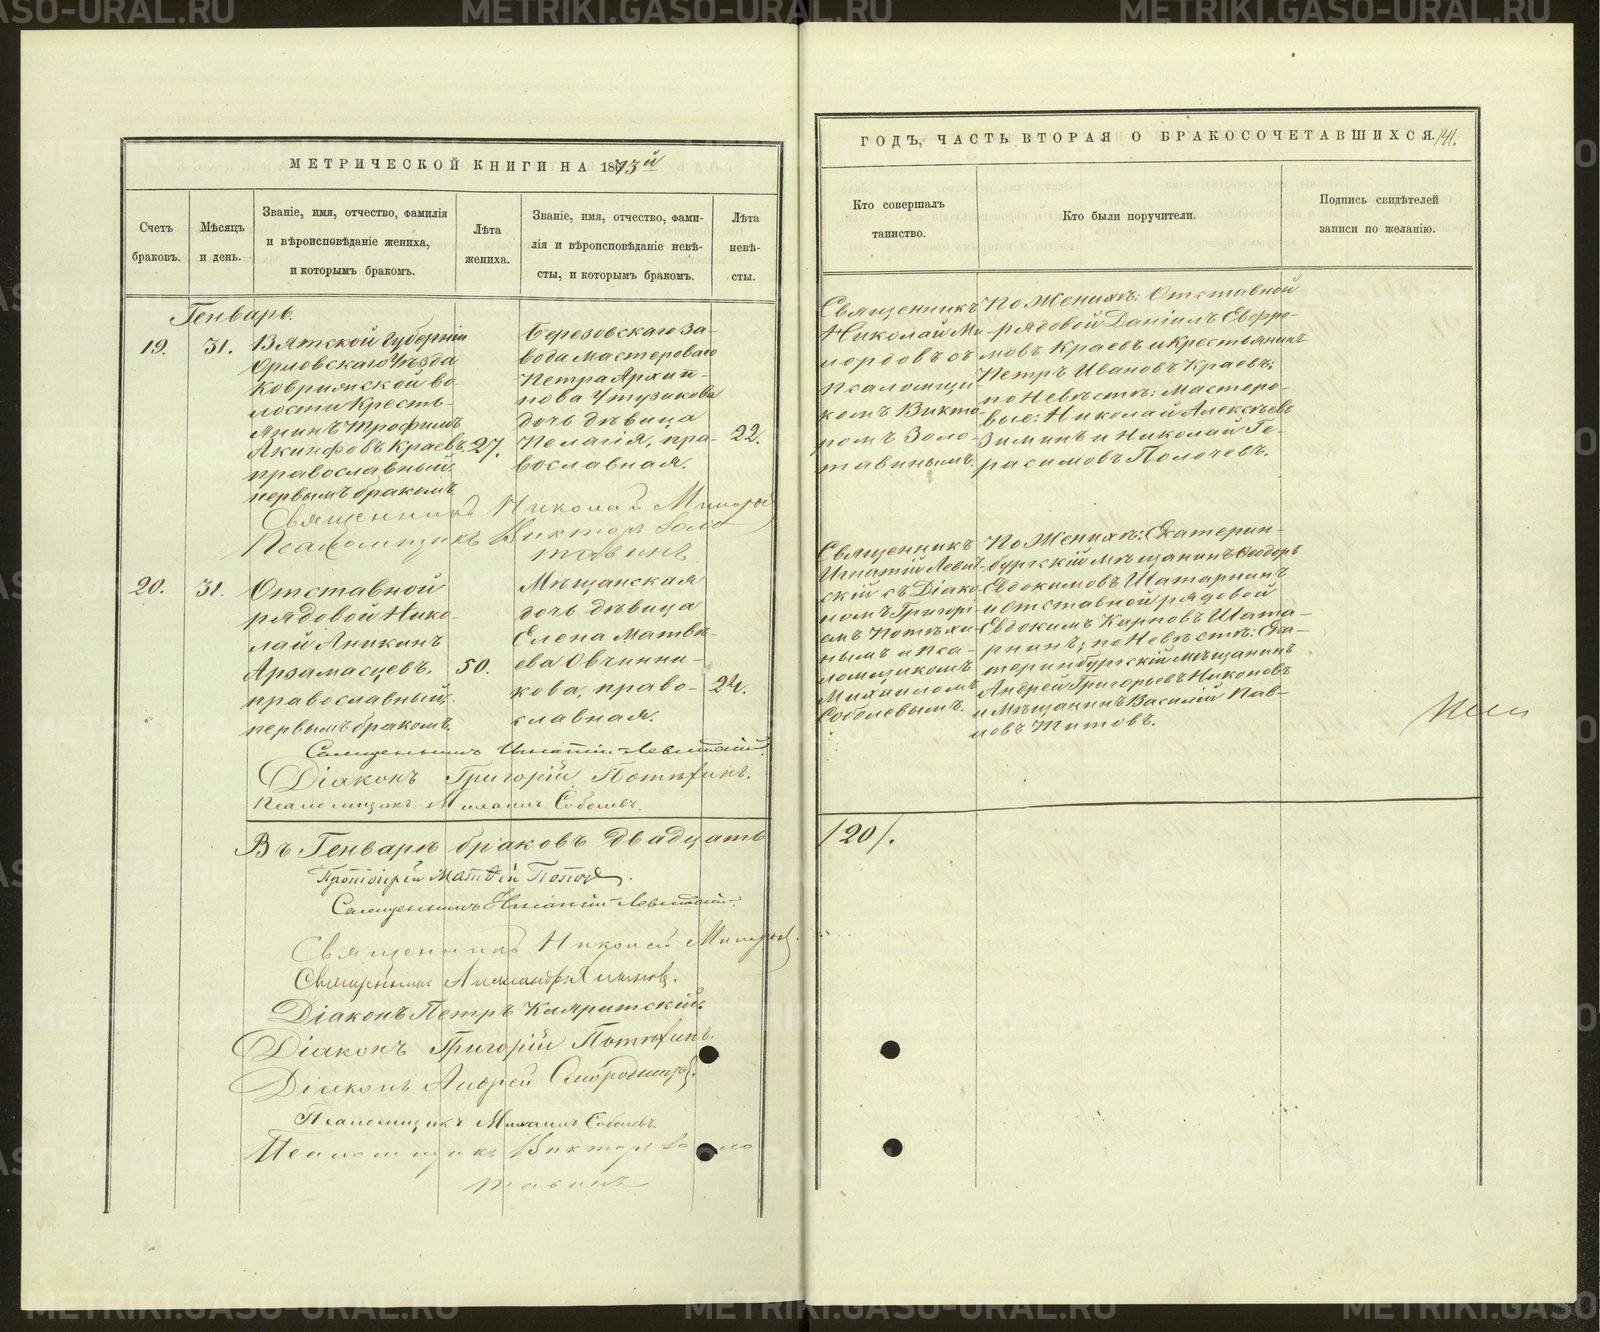 МЕТРИЧЕСКОЙ КНИГИ НА 1873й
Счетъ браковъ.
Мѣсяцъ и день.
Званіе, имя, отчество, фамилія
и вѣроисповѣданіе жениха,
и которымъ бракомъ.
Лѣта жениха.
Званіе, имя, отчество, фами-
лія и вѣроисповѣданіе невѣ-
сты, и которымъ бракомъ.
Лѣта невѣ-
сты.
Генварь.
19.
31.
Вятской Губерніи
Орловскаго Уѣзда
Ковриженской во-
лости Кресть-
янинъ Трофимъ
Акинфовъ Краевъ.
православный,
первымъ бракомъ
27.
Березовскаго за-
вода мастероваго
Петра Архип-
пова Утузикова
дочь дѣвица
Пелагія, пра-
вославная.
22.
Священникъ Николай
Псаломщикъ Викторъ Золо
тавинъ
20.
31.
Отставной
рядовой Нико-
лай Аникинъ
Арзамасцевъ,
православный,
первымъ бракомъ.
50.
Мѣщанская
дочь дѣвица
Елена Матвѣ-
ева Овчинни-
кова, право-
славная.
24.
Священникъ Игнатій Левитскій.
Діаконъ Григорій Потѣхинъ.
Псаломщикъ Михаилъ Соболевъ.
Въ Генварѣ браковъ двадцать
Протоіерей Матѳій Поповъ.
Священникъ Игнатій Левитскій.
Священникъ Николай
Священникъ Александръ
Діаконъ Петръ
Діаконъ Григорій Потѣхинъ.
Діаконъ Андрей Смородинцевъ.
Псаломщикъ Михаилъ Соболевъ.
Псаломщикъ Викторъ Золо
тавинъ
ГОДЪ, ЧАСТЬ ВТОРАЯ О БРАКОСОЧЕТАВШИХСЯ. 141.
Кто совершалъ
таинство.
Кто были поручители.
Подпись свидѣтелей
записи по желанію.
Священникъ
Николай Ми-
лордовъ съ
псаломщи-
комъ Викто-
ромъ Золо-
тавинымъ.
По Женихѣ: Отставной
рядовой Даніилъ Евфре-
мовъ Краевъ и крестьянинъ
Петръ Ивановъ Краевъ;
по Невѣстѣ: мастеро-
вые: Николай Алексѣевъ
Зиминъ и Николай Ге-
расимовъ Полочевъ.
Священникъ
Игнатій Левит-
скій съ Діако-
номъ Григорі-
емъ Потѣхи-
нымъ и пса-
ломщикомъ
Михаиломъ
Соболевымъ.
По Женихѣ: Екатерин-
бургскій мѣщанинъ Ѳедоръ
Евдокимовъ Шатарнинъ
и Отставной рядовой
Евдокимъ Карповъ Шата-
рнинъ; по Невѣстѣ: Ека-
теринбургскій мѣщанинъ
Андрей Григорьевъ Никоновъ
и Мѣщанинъ Василій Пав-
ловъ Титовъ.
/20/.
METRIKI.GASO-URAL.RU